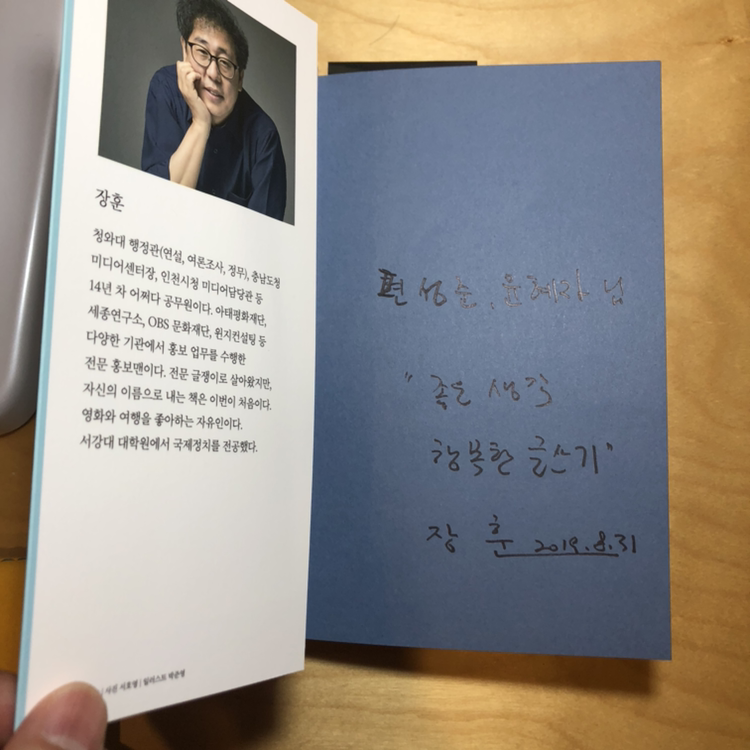 장훈
청와대 행정관(연설, 여론조사, 정무), 충남도청
미디어센터장, 인천시청 미디어담당관 등
14년 차 어쩌다 공무원이다. 아태평화재단,
세종연구소, OBS 문화재단, 윈지컨설팅 등
다양한 기관에서 홍보 업무를 수행한
전문 홍보맨이다. 전문 글쟁이로 살아왔지만,
자신의 이름으로 내는 책은 이번이 처음이다.
영화와 여행을 좋아하는 자유인이다.
서강대 대학원에서 국제정치를 전공했다.
| 사진 서호영 | 일러스트 박은영
편성준, 윤혜자 님
"좋은 생각
행복한 글쓰기"
장 훈 2019.8.31